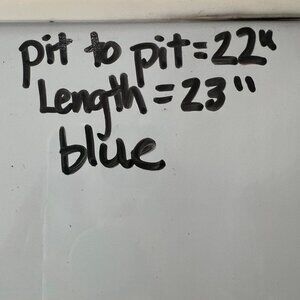 pit to pit=22"
Length=23"
blue